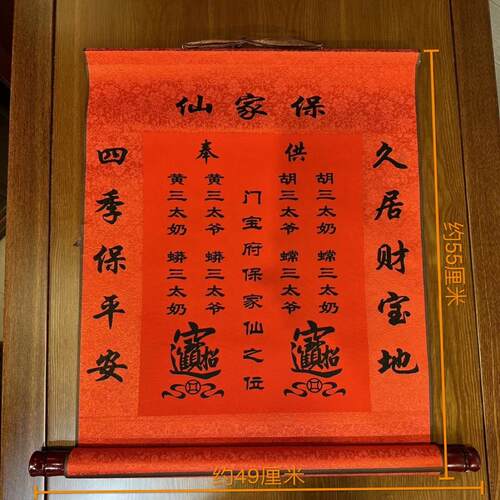 保家仙
供奉
久居财宝地
胡三太奶 蟐三太奶
胡三太爷 蟐三太爷
门宝府保家仙之位
黄三太爷 蟒三太爷
黄三太奶 蟒三太奶
四季保平安
招财进宝
招财进宝
约55厘米
约49厘米